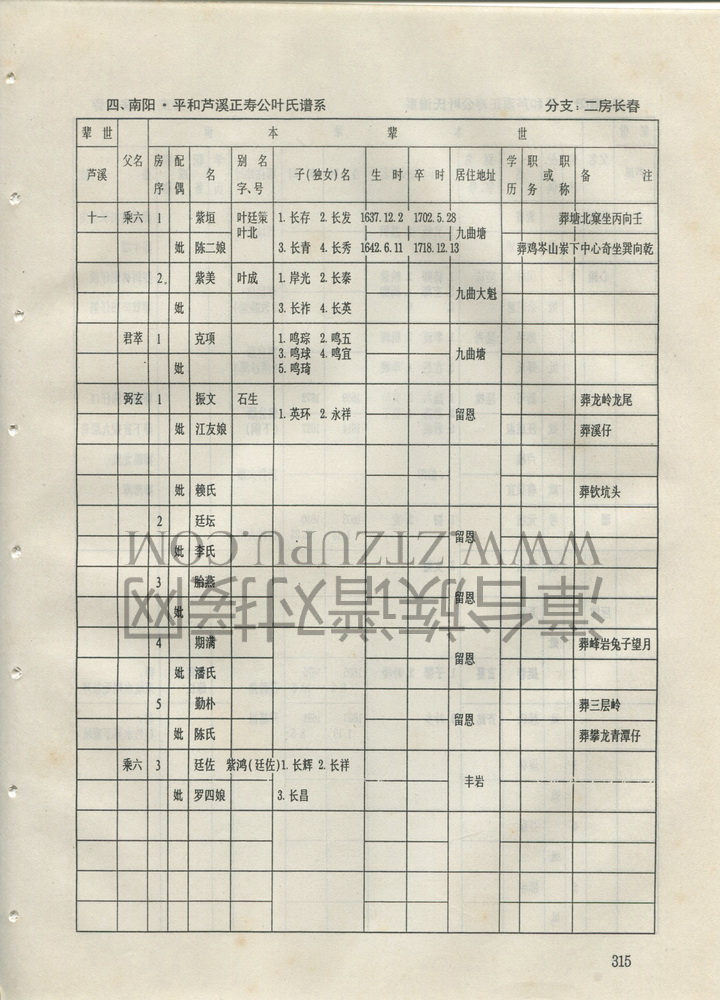 四、南阳·平和芦溪正寿公叶氏谱系 分支：二房长春
辈世 本辈世
芦溪 父名 房序 配偶 名 别名字、号 子(独女)名 生时 卒时 居住地址 学历 职务或职称 备注
十一 乘六 1 紫垣 叶廷策 1.长存 2.长发 1637.12.2 1702.5.28 葬塘北窠坐丙向壬
叶北 九曲塘
妣 陈二娘 3.长青 4.长秀 1642.6.11 1718.12.13 葬鸡岑山岽下中心奇坐巽向乾
2 紫美 叶成 1.岸光 2.长泰
九曲大魁
妣 3.长祚 4.长英
君萃 1 克项 1.鸣琮 2.鸣五
3.鸣球 4.鸣宜 九曲塘
妣 5.鸣琦
弼玄 1 振文 石生 葬龙岭龙尾
1.英环 2.永祥 留恩
妣 江友娘 葬溪仔
妣 赖氏 葬钦坑头
2 廷坛
留恩
妣 李氏
3 胎燕
留恩
妣
4 期满 葬峰岩兔子望月
留恩
妣 潘氏
5 勤朴 葬三层岭
留恩
妣 陈氏 葬攀龙青潭仔
乘六 3 廷佐 紫鸿(廷佐) 1.长辉 2.长祥
丰岩
妣 罗四娘 3.长昌
WWW.ZTZUPU.COM
漳台族谱对接网
315